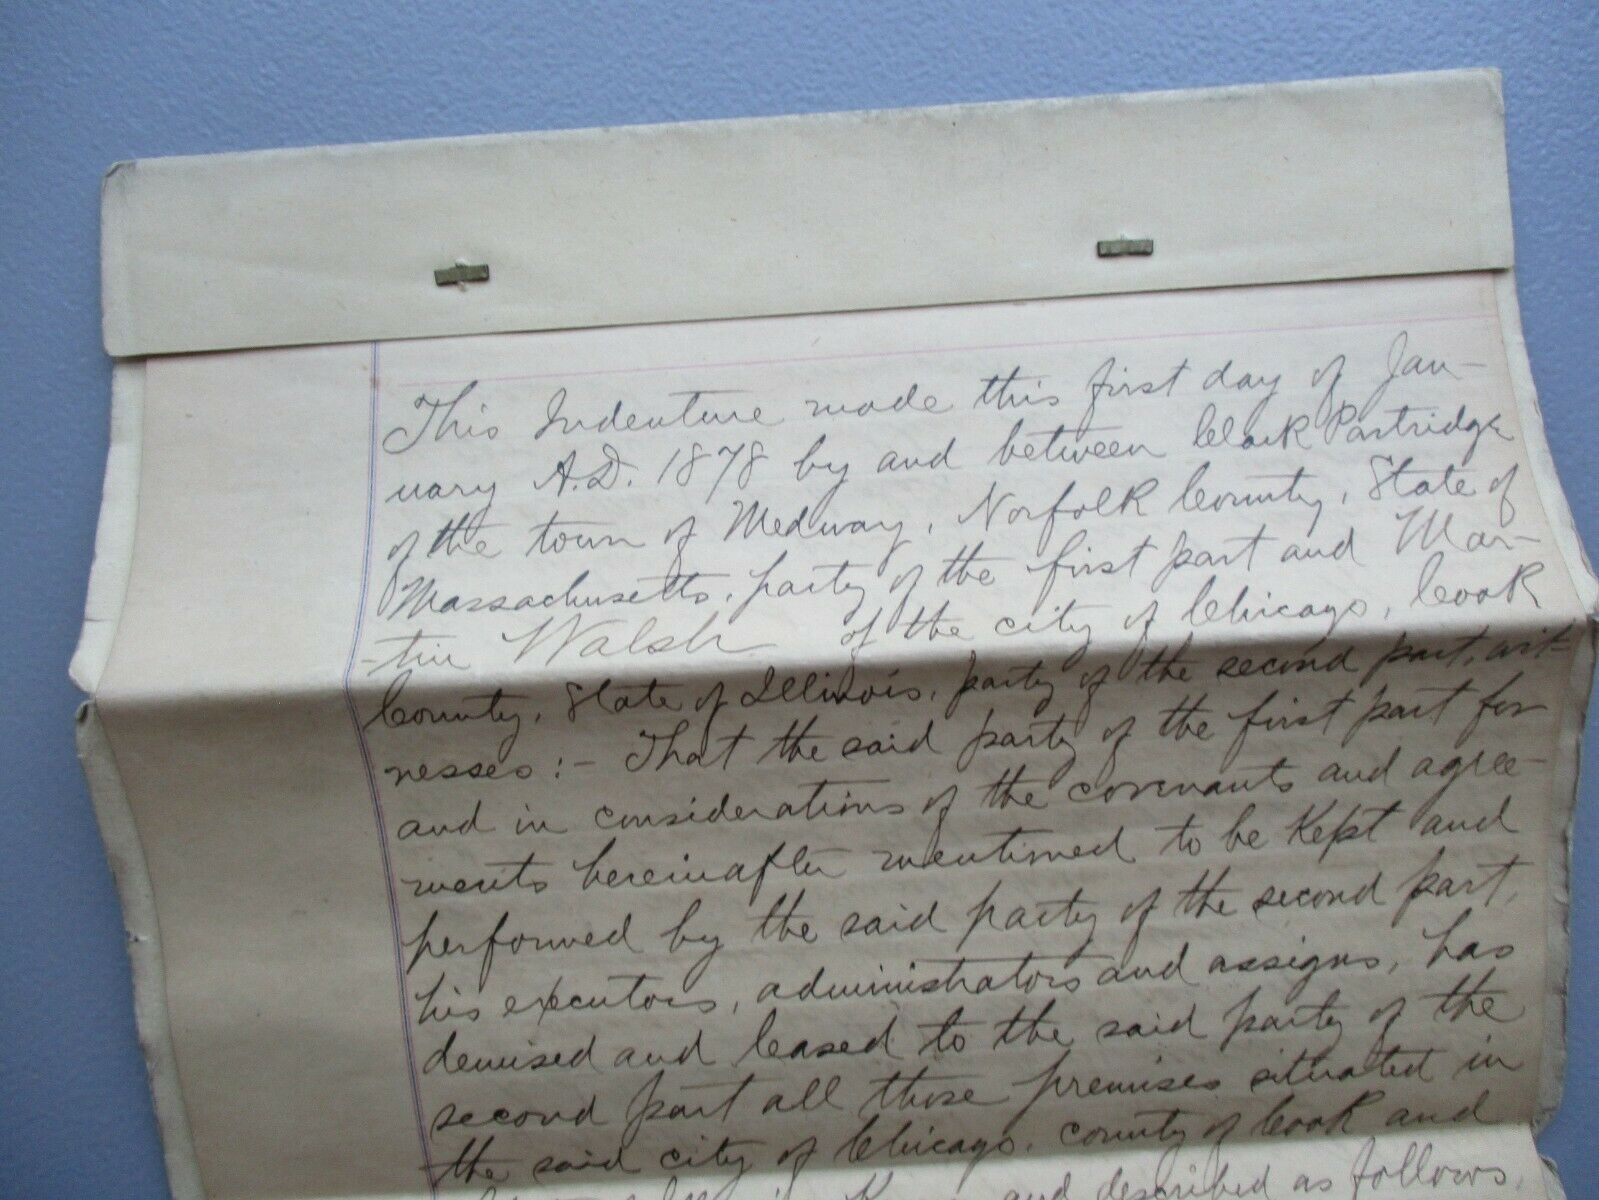 This Indenture made this first day of Jan-
uary A.D. 1878 by and between Clark Partridge
of the town of Medway, Norfolk County, State of
Massachusetts, party of the first part and Mar-
-tin Walsh of the city of Chicago, Cook
County, State of Illinois, party of the second part, wit-
nesses:- That the said party of the first part for
and in considerations of the covenants and agree-
ments hereinafter mentioned to be kept and
performed by the said party of the second part,
his executors, administrators and assigns, has
demised and leased to the said party of the
second part all those premises situated in
the said city of Chicago, county of Cook and
and described as follows,